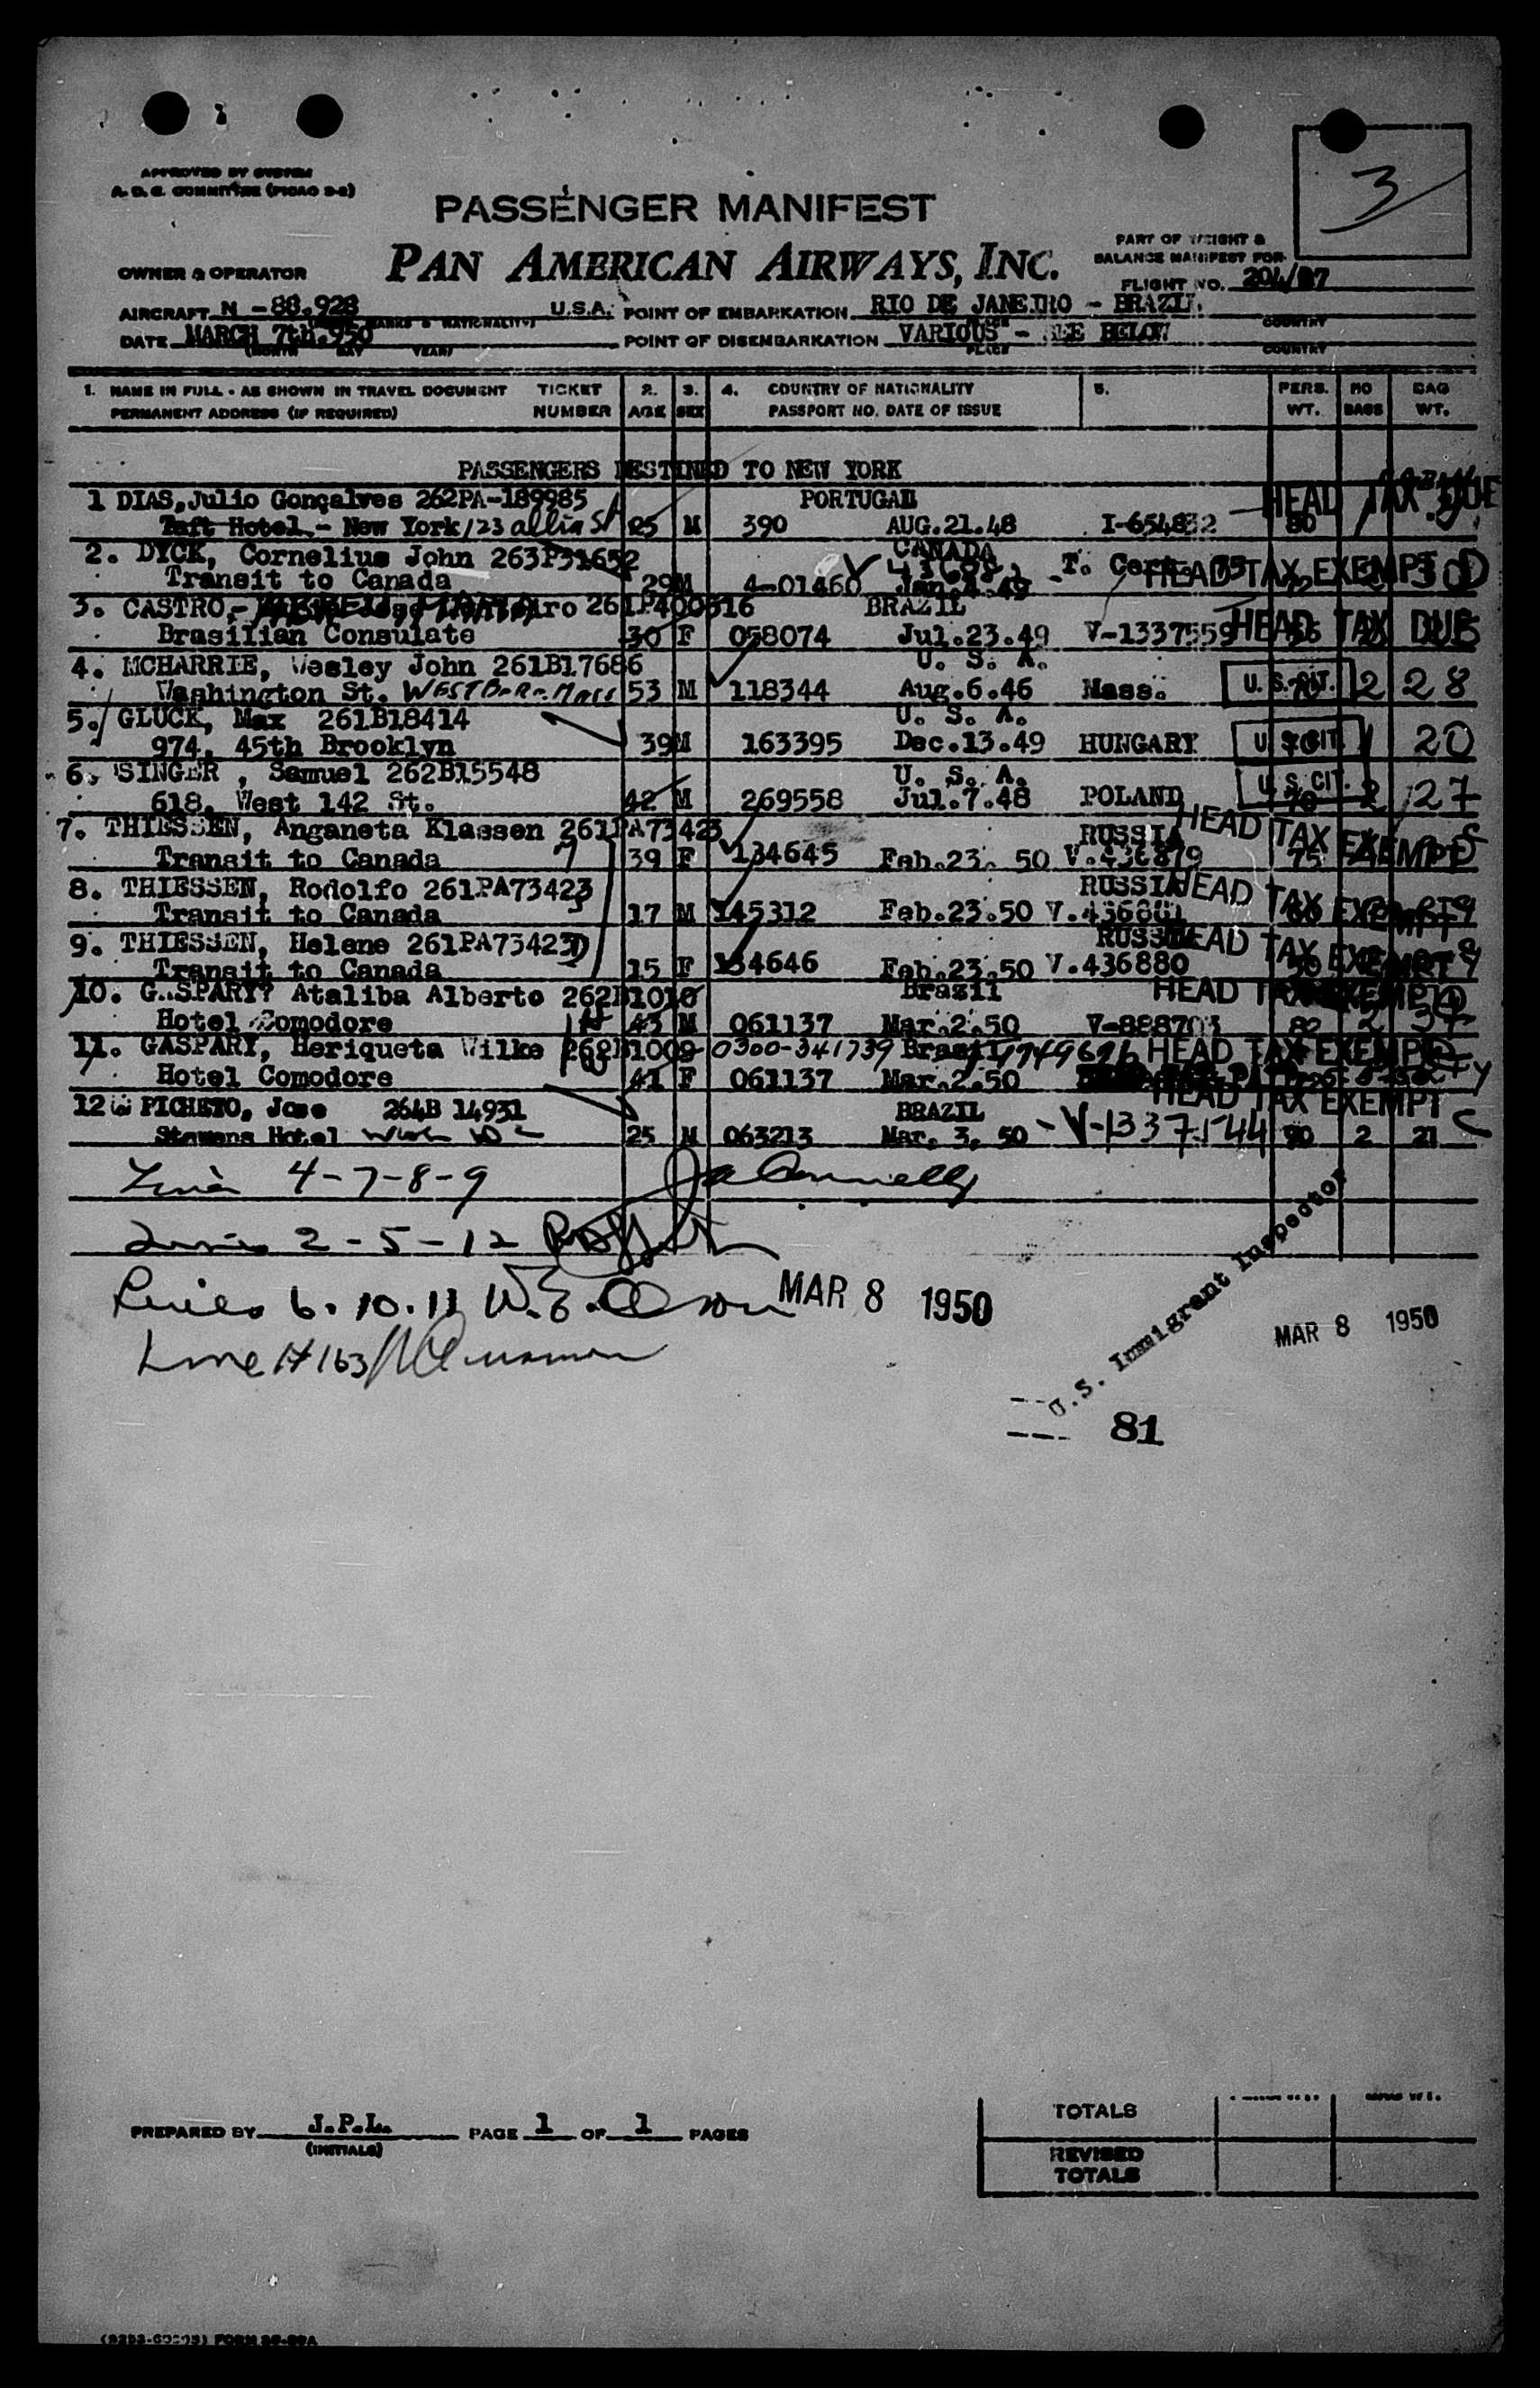 3
APPROVED BY SYSTEM
A. D. C. COMMITTEE (PICAO 2-2)
PASSENGER MANIFEST
PAN AMERICAN AIRWAYS, INC.
PART OF WEIGHT &
BALANCE MANIFEST FOR
OWNER & OPERATOR
FLIGHT NO. 204/
AIRCRAFT N - 88.928 U.S.A. POINT OF EMBARKATION RIO DE JANEIRO - BRAZIL.
COUNTRY
DATE MARCH 7th.950 POINT OF DISEMBARKATION VARIOUS - SEE BELOW
(MONTH DAY YEAR) PLACE COUNTRY
1. NAME IN FULL - AS SHOWN IN TRAVEL DOCUMENT TICKET 2. 3. 4. COUNTRY OF NATIONALITY 5. PERS. NO BAG
PERMANENT ADDRESS (IF REQUIRED) NUMBER AGE SEX PASSPORT NO. DATE OF ISSUE WT. BAGS WT.
PASSENGERS DESTINED TO NEW YORK
1 DIAS,Julio Gonçalves 262PA-189985 PORTUGAL HEAD TAX DUE
Taft Hotel - New York/23 St 25 M 390 AUG.21.48 I-654832 80
2. DYCK, Cornelius John 263P31652 CANADA
Transit to Canada 29 M 4-01460 Jan.4.49 T. HEAD TAX EXEMPT
3. CASTRO,- 261P400616 BRAZIL
Brasilian Consulate 30 F 058074 Jul.23.49 V-1337559 HEAD TAX DUE
4. MCHARRIE, Wesley John 261B17686 U. S. A.
Washington St. WESTBoRo. MASS 53 M 118344 Aug.6.46 Mass. U. S. CIT. 2 28
5. GLUCK, Max 261B18414 U. S. A.
974, 45th Brooklyn 39 M 163395 Dec.13.49 HUNGARY U S CIT. 1 20
6. SINGER , Samuel 262B15548 U. S. A.
618, West 142 St. 42 M 269558 Jul.7.48 POLAND U. S. CIT. 70 2 27
7. THIESSEN, Anganeta Klassen 261PA73423 RUSSIA HEAD TAX EXEMPT
Transit to Canada 39 F 134645 Feb.23. 50 V.436879 75
8. THIESSEN, Rodolfo 261PA73423 RUSSIA HEAD TAX EXEMPT
Transit to Canada 17 M 145312 Feb.23.50 V.436881 60
9. THIESSEN, Helene 261PA73423 RUSSIA HEAD TAX EXEMPT
Transit to Canada 15 F 134646 Feb.23.50 V.436880 50
10. GASPARY, Ataliba Alberto 262B1010 Brazil HEAD TAX EXEMPT
Hotel Comodore 43 M 061137 Mar.2.50 82 2 37
11. GASPARY, Heriqueta Wilke 262B1009 0300-341739 Brasil HEAD TAX EXEMPT
Hotel Comodore 41 F 061137 Mar.2.50
HEAD TAX EXEMPT
12 PICHETO, Jose 264B 14931 BRAZIL
Stewens Hotel 25 M 063213 Mar. 3, 50 - V-1337544 90 2 21
4-7-8-9
2-5-12
6. 10. 11 W. E. Olson MAR 8 1950
U.S. Immigrant Inspector
MAR 8 1950
81
PREPARED BY J.P.L. PAGE 1 OF 1 PAGES
(INITIALS)
TOTALS
REVISED
TOTALS